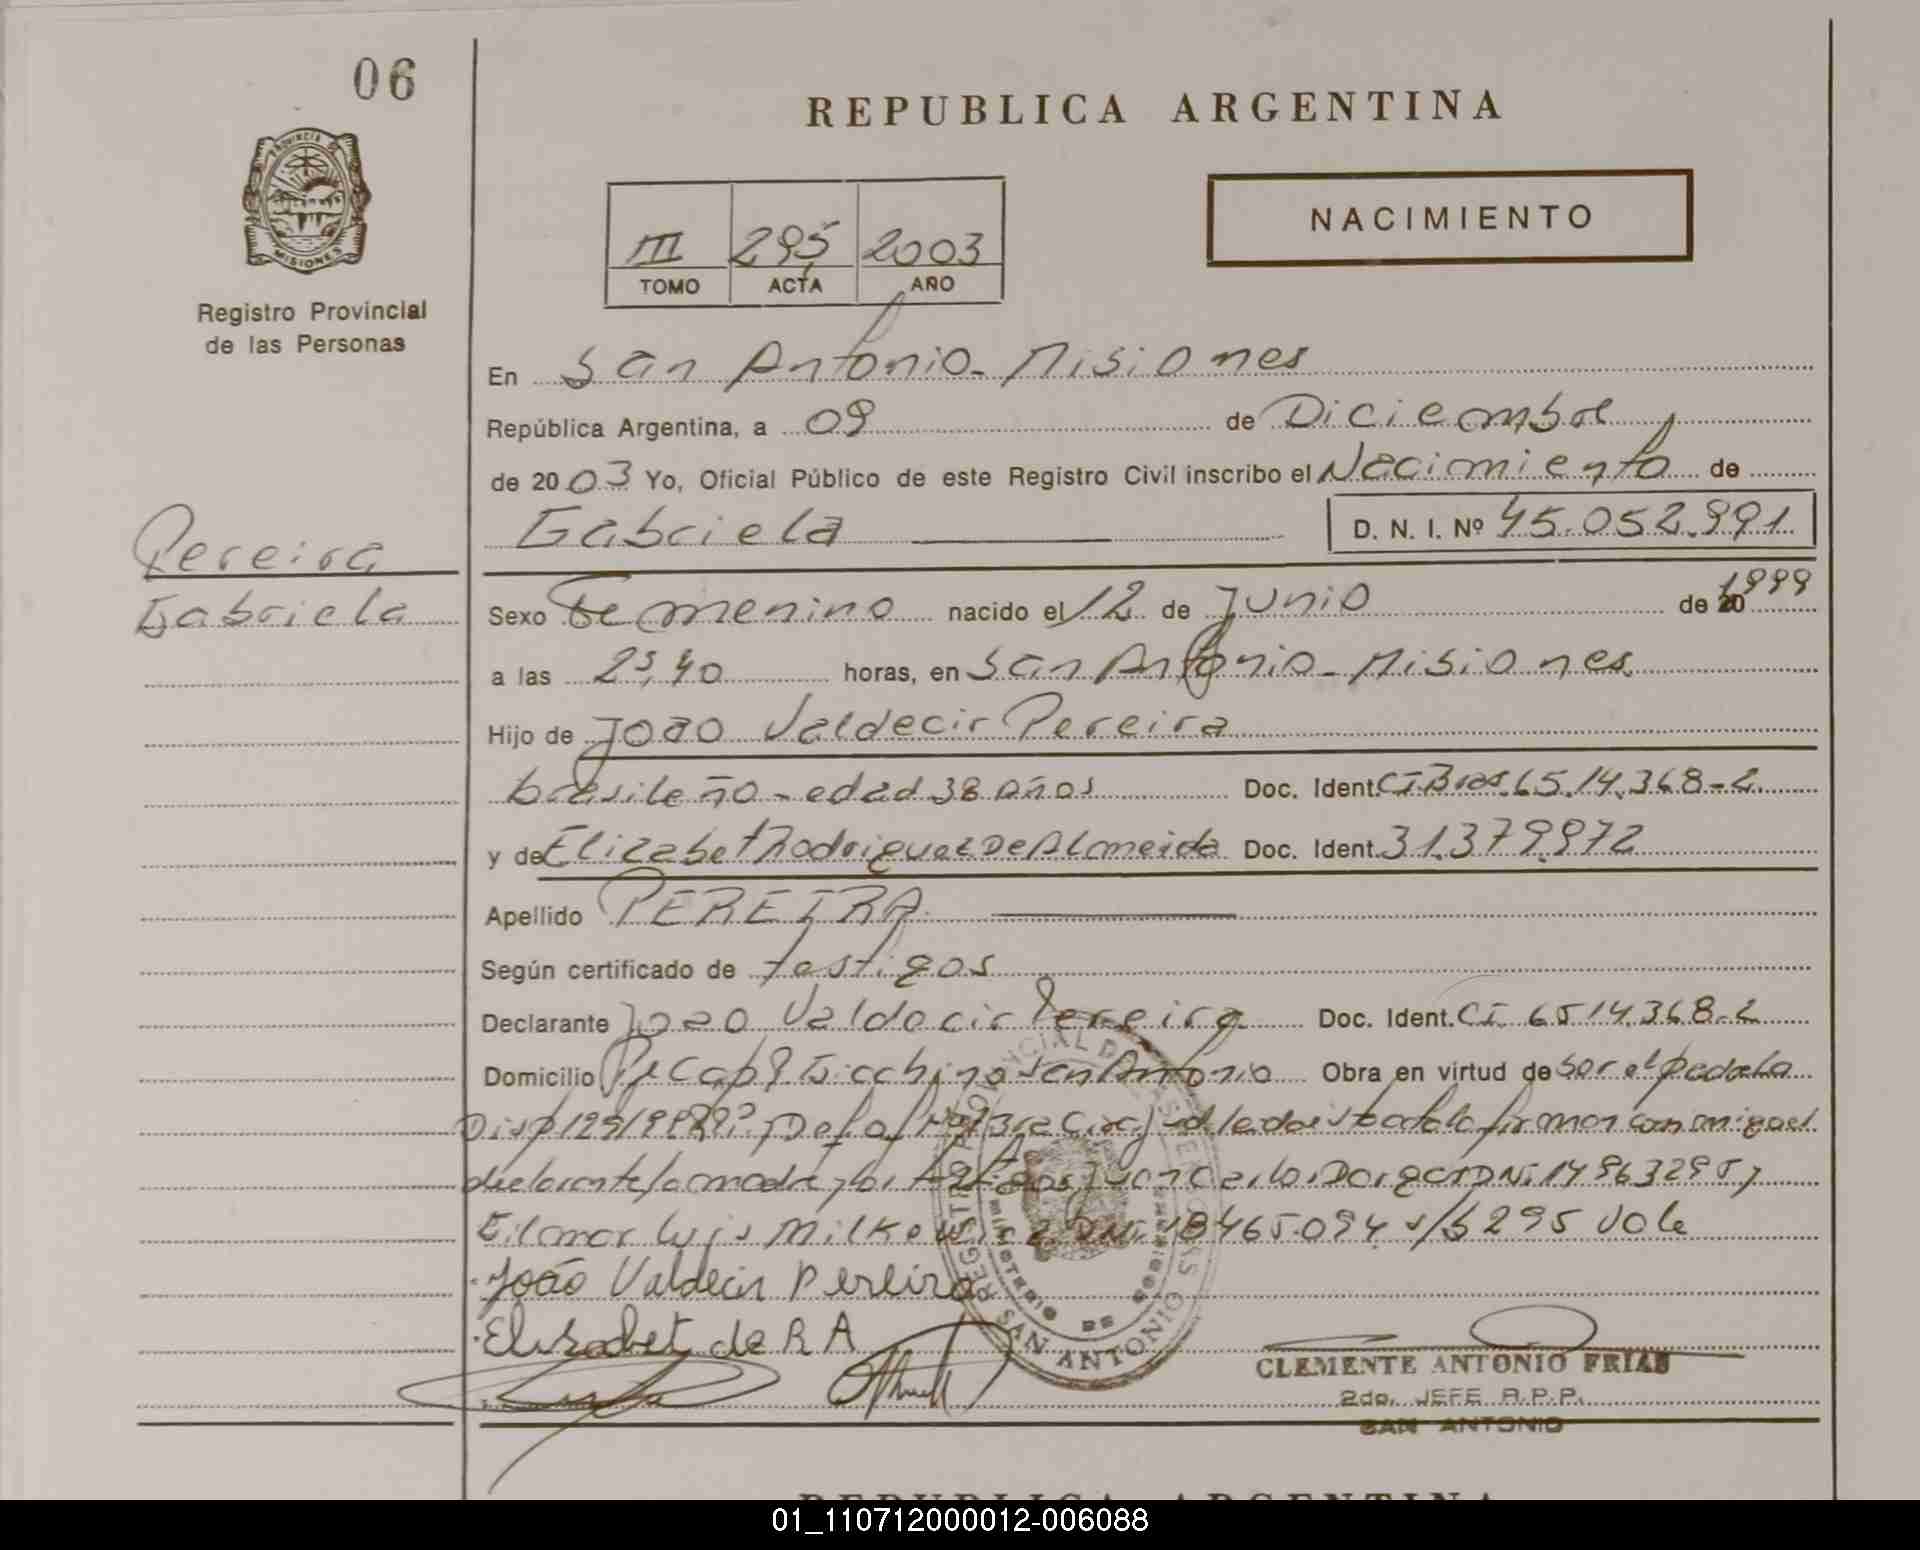 06
REPUBLICA ARGENTINA
PROVINCIA DE
MISIONES
Registro Provincial
de las Personas
III 295 2003
TOMO ACTA AÑO
NACIMIENTO
En San Antonio - Misiones
República Argentina, a 09 de Diciembre
de 2003 Yo, Oficial Público de este Registro Civil inscribo el Nacimiento de
Gabriela D. N. I. Nº 45.052.991
Pereira
Gabriela
Sexo Femenino nacido el 12 de Junio de 20 1999
a las horas, en San Antonio - Misiones
Hijo de Joao Valdecir Pereira
brasileño - edad 38 años Doc. Ident. CI Bras. 6514.368-2
y de Elizabet Rodriguez De Almeida Doc. Ident. 31.379.972
Apellido PEREIRA
Según certificado de testigos
Declarante Joao Valdecir Pereira Doc. Ident. CI 6514.368-2
Domicilio San Antonio Obra en virtud de
Disp 129/99
declarante la madre y los testigos Juan Carlos DNI 14963295 y
Luis DNI 18465.094 s/b 295 Vale
João Valdecir Pereira
Elisabet de R A
REGISTRO PROVINCIAL DE LAS PERSONAS
MINISTERIO DE GOBIERNO
SAN ANTONIO
CLEMENTE ANTONIO FRIAS
2do. JEFE R.P.P.
SAN ANTONIO
REPUBLICA ARGENTINA
01_110712000012-006088